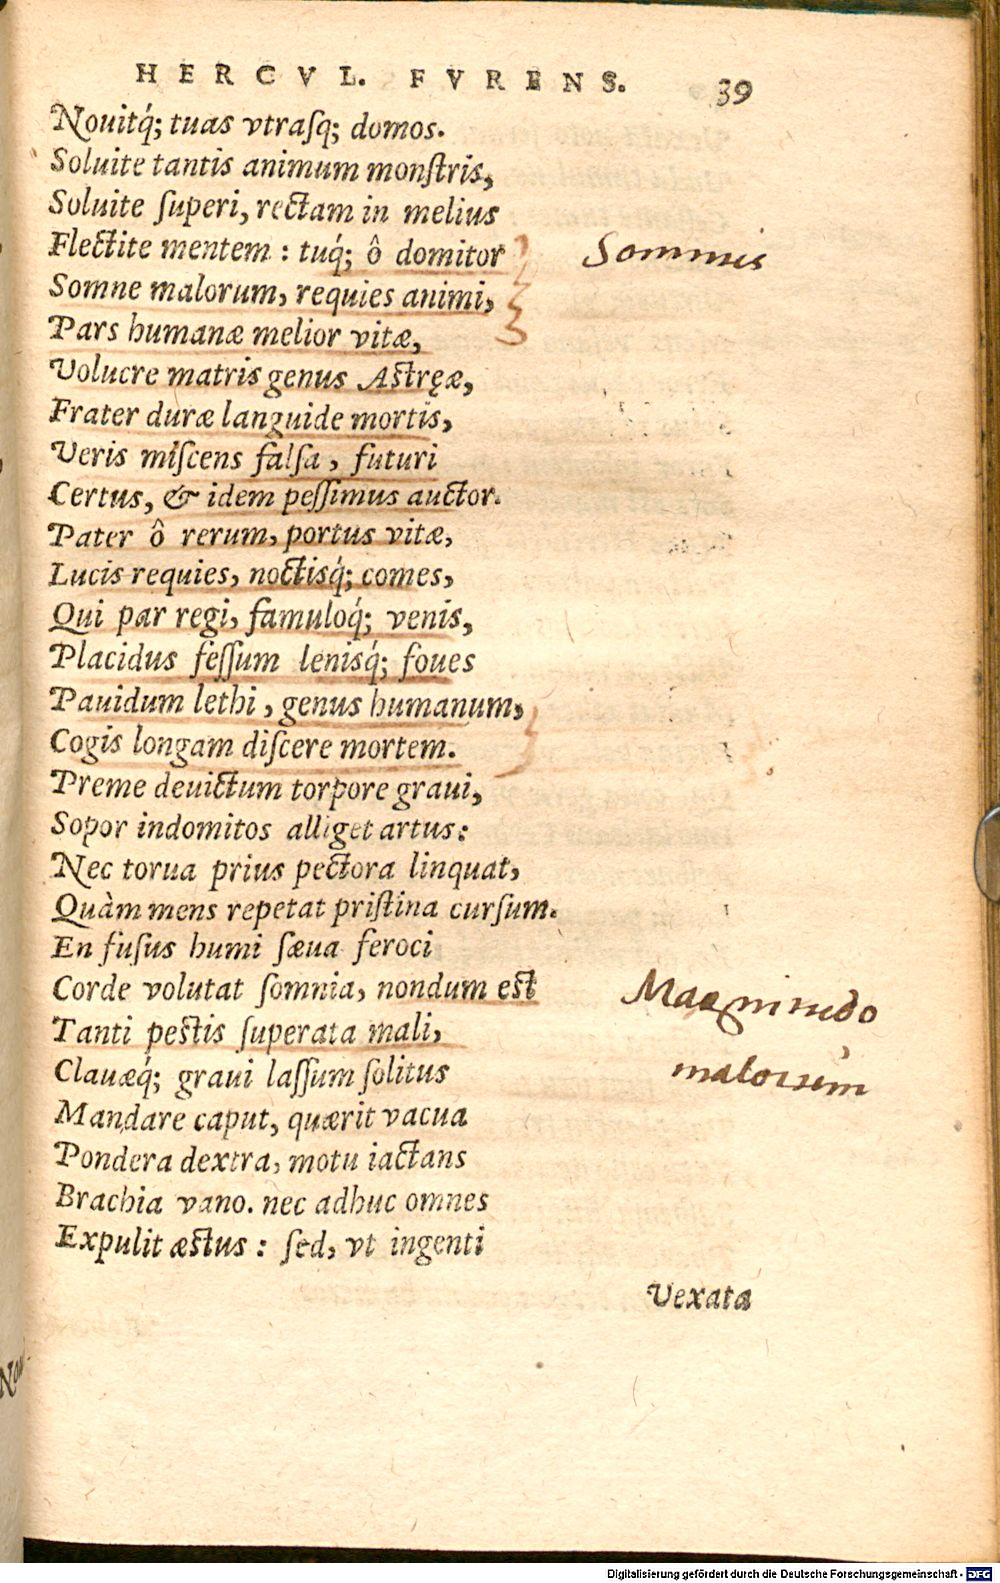 HERCVL. FVRENS. 39
Nouitq́; tuas vtrasq; domos.
Soluite tantis animum monſtris,
Soluite ſuperi, rectam in melius
Flectite mentem : tuq́; ô domitor
Somnus
Somne malorum, requies animi,
Pars humanæ melior vitæ,
Volucre matris genus Aſtręæ,
Frater duræ languide mortis,
Veris miſcens falſa, futuri
Certus, & idem peſſimus auctor.
Pater ô rerum, portus vitæ,
Lucis requies, noctisq́; comes,
Qui par regi, famuloq́; venis,
Placidus feſſum lenisq́; foues
Pauidum lethi, genus humanum,
Cogis longam diſcere mortem.
Preme deuictum torpore graui,
Sopor indomitos alliget artus:
Nec torua prius pectora linquat,
Quàm mens repetat priſtina curſum.
En fuſus humi ſæua feroci
Corde volutat ſomnia, nondum eſt
Magnitudo
Tanti peſtis ſuperata mali,
malorum
Clauæq́; graui laſſum ſolitus
Mandare caput, quærit vacua
Pondera dextra, motu iactans
Brachia vano. nec adhuc omnes
Expulit æſtus : ſed, vt ingenti
Vexata
Digitalisierung gefördert durch die Deutsche Forschungsgemeinschaft - DFG